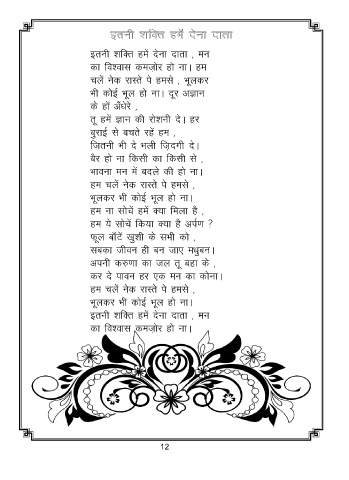 इतनी शक्ति हमें देना दाता
इतनी शक्ति हमें देना दाता , मन
का विश्वास कमज़ोर हो ना। हम
चलें नेक रास्ते पे हमसे , भूलकर
भी कोई भूल हो ना। दूर अज्ञान
के हों अँधेरे ,
तू हमें ज्ञान की रोशनी दे। हर
बुराई से बचते रहें हम ,
जितनी भी दे भली ज़िंदगी दे।
बैर हो ना किसी का किसी से ,
भावना मन में बदले की हो ना।
हम चलें नेक रास्ते पे हमसे ,
भूलकर भी कोई भूल हो ना।
हम ना सोचें हमें क्या मिला है ,
हम ये सोचें किया क्या है अर्पण ?
फूल बाँटें खुशी के सभी को ,
सबका जीवन ही बन जाए मधुबन।
अपनी करुणा का जल तू बहा के ,
कर दे पावन हर एक मन का कोना।
हम चलें नेक रास्ते पे हमसे ,
भूलकर भी कोई भूल हो ना।
इतनी शक्ति हमें देना दाता , मन
का विश्वास कमज़ोर हो ना।
12